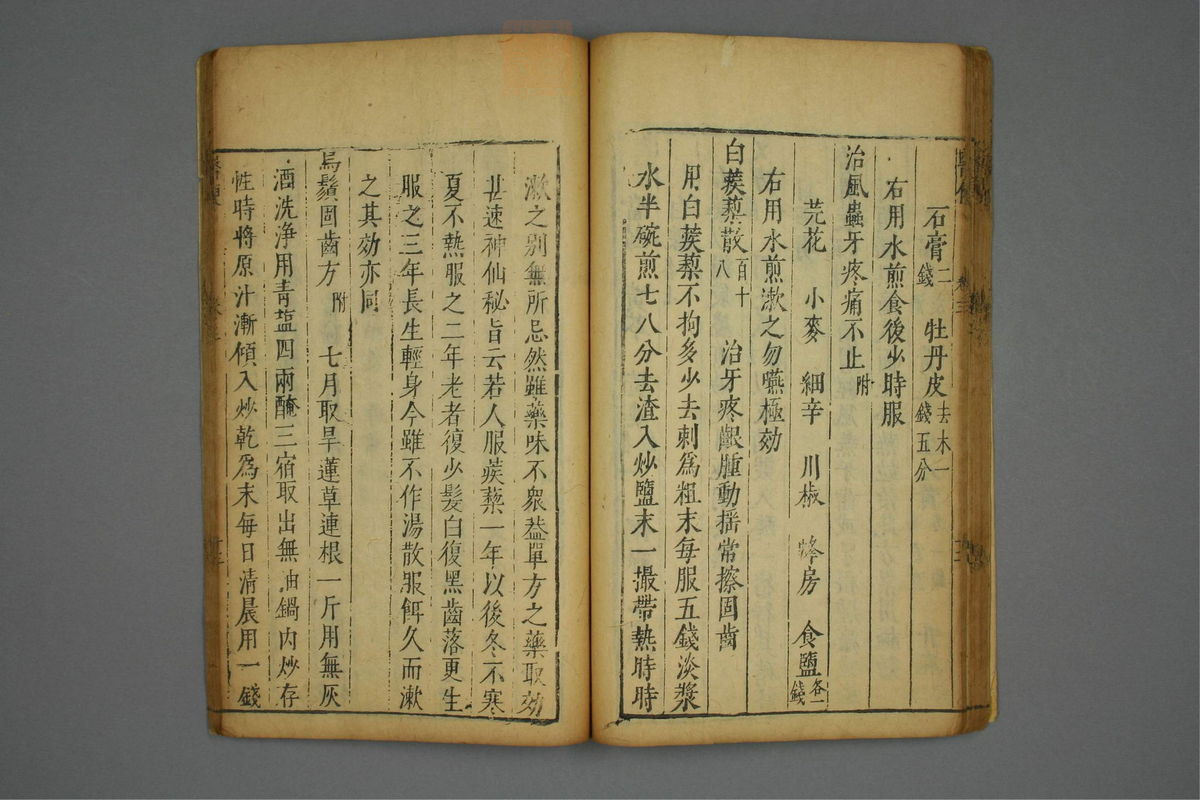 石膏二錢　牡丹皮去木一錢五分
右用水煎食後少時服
治風蟲牙疼痛不止附
芫花　小麥　細辛　川椒　蜂房　食鹽各一錢
右用水煎漱之勿嚥極効
白蒺藜散百十八　治牙疼齦腫動揺常擦固齒
用白蒺藜不拘多少去刺爲粗末每服五錢淡漿
水半碗煎七八分去渣入炒鹽末一撮帶熱時時
漱之别無所忌然雖藥味不衆葢單方之藥取効
甚速神仙秘旨云若人服蒺藜一年以後冬不寒
夏不熱服之二年老者復少髮白復黑齒落更生
服之三年長生輕身今雖不作湯散服餌久而漱
之其効亦同
烏鬚固齒方附　七月取旱蓮草連根一斤用無灰
酒洗浄用青塩四兩醃三宿取出無油鍋内炒存
性時將原汁漸傾入炒乾爲末每日清晨用一錢